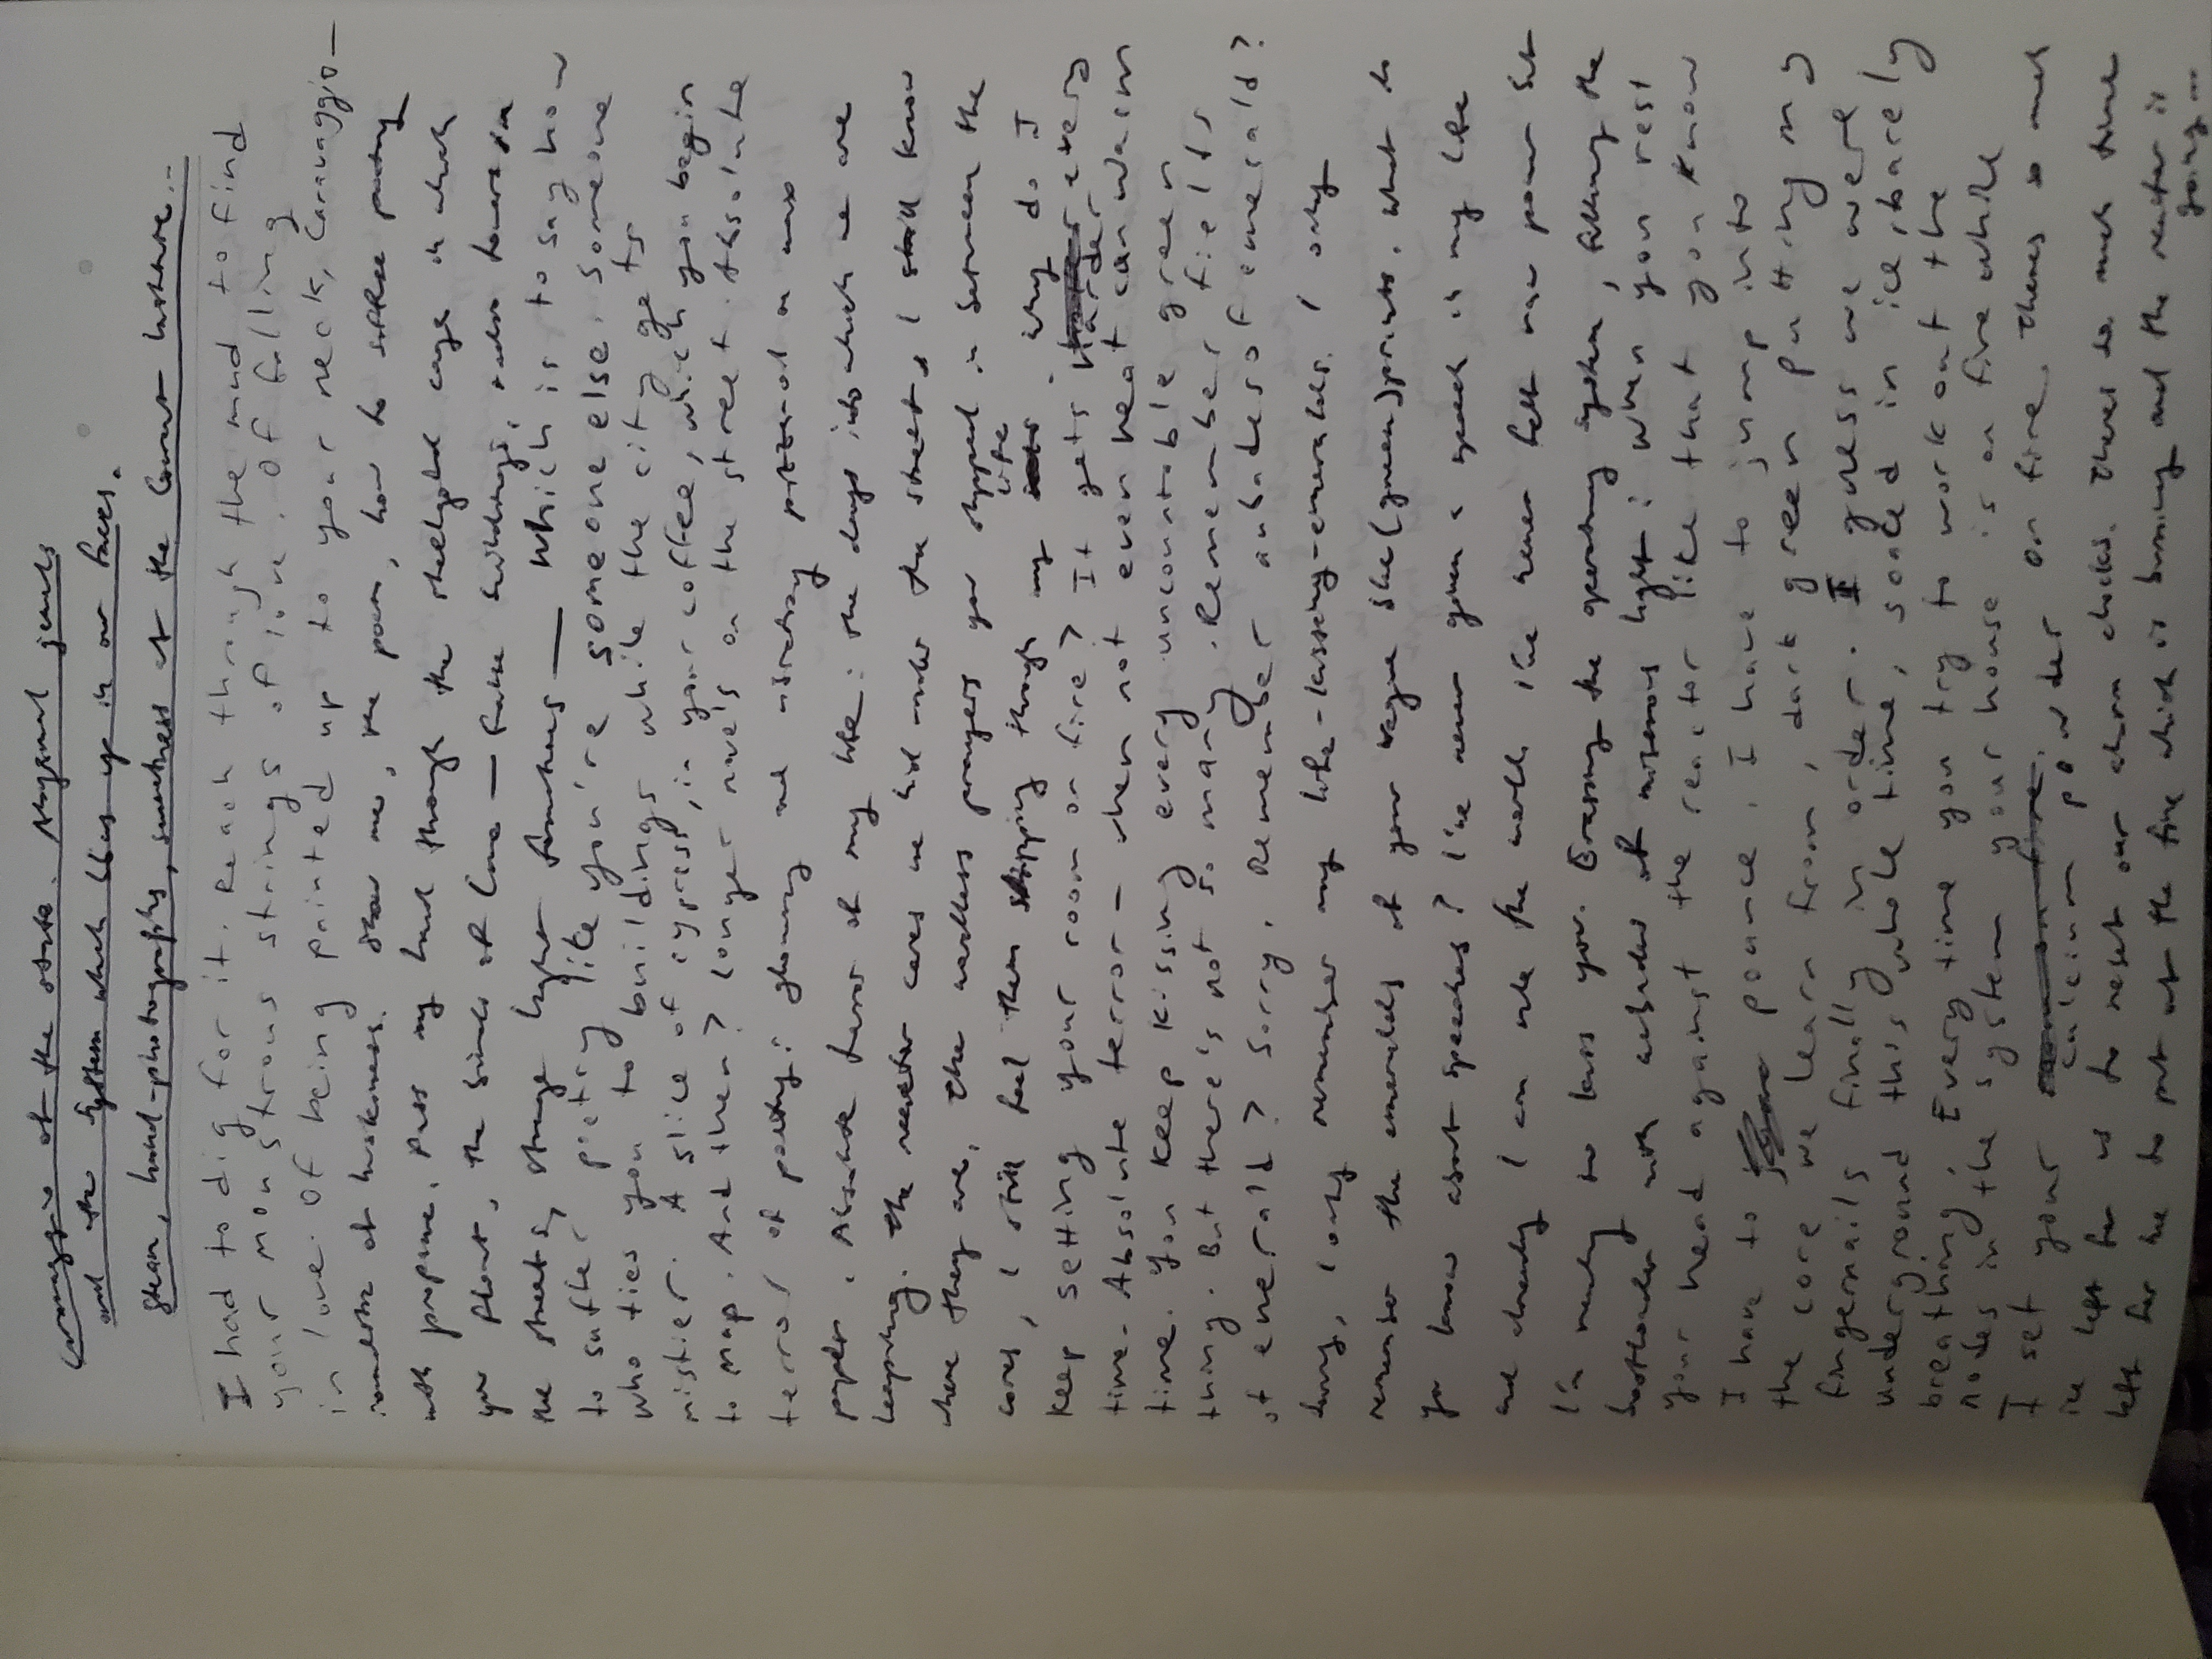 Caravaggio of the state. Abysmal jewels
and the system which blows up in our faces.
Steam, hand-photographs, sweetness at the Courant Institute...
I had to dig for it. Reach through the mud to find
your monstrous strings of love. Of falling
in love. Of being painted up to your neck, Caravaggio—
of huskiness. Show me, the poem, how to suffuse poetry
with propane. Pass my hand through the shellgold cage in which
you float, the birds of love — false buildings, radio towers in
the streets, strange light functions — which is to say how
to suffer poetry like you're someone else. Someone
who ties you to buildings while the city gets
mistier. A slice of cypress, in your coffee, which you begin
to map. And then? Longer naves on the street. Absolute
terror of poetry: glowing and vibrating on wax
paper. Absolute terror of my life: the days into which we are
leapling. The reactor cores we hid under the street, I still know
where they are, the wordless prayers you slipped in between the
cores, I still feel them slipping through my life. Why do I
keep setting your room on fire? It gets harder every
time. Absolute terror — when not even heat can warm
time. You keep kissing every uncountable green
thing. But there's not so many. Remember fields
of emerald? Sorry. Remember aubades of emerald?
Sorry, I only remember my life-kissing-emeralds. I only
remember the emeralds of your vague blue(green)prints. What do
you know about speeches? I've never given a speech in my life
and already I am the world. I've never felt raw power but
I'm ready to kiss you. Erasing the operating system, filling the
bootloader with aubades of light: when you rest
your head against the reactor like that you know
I have to pounce. I have to jump into
the core we learn from, dark green putting my
fingernails finally in order. I guess we were
underground this whole time, soaked in ice, barely
breathing. Every time you try to work out the
nodes in the system your house is on fire while
I set your calcium powder on fire. Theres so much
ice left for us to reset our alarm clocks. Theres so much time
left for me to put out the fire which is burning and the reactor is
going...